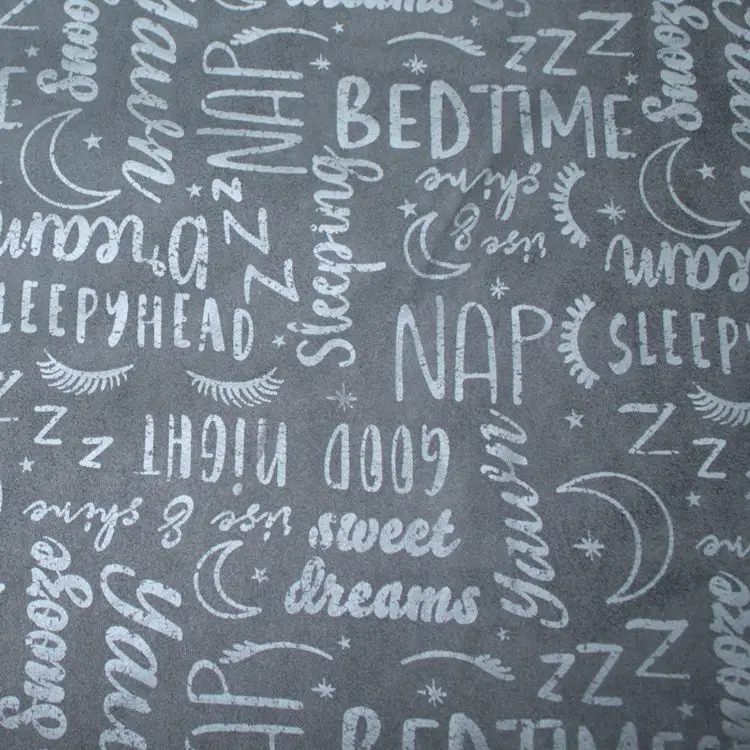 dreams
snooze
yawn
NAP
ZZZ
snooze
BEDTIME
Sleeping
rise & shine
ZZZ
Dream
SLEEPYHEAD
NAP
SLEEPY
Dream
ZZ
ZZ
GOOD NIGHT
rise & shine
sweet
dreams
yawn
snooze
yawn
snooze
NAP
ZZZ
BEDTIME